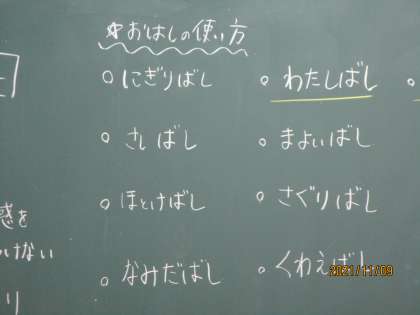 ☆おはしの使い方
○にぎりばし
○さしばし
○ほとけばし
○なみだばし
○わたしばし
○まよいばし
○さぐりばし
○くわえばし
惑を
けない
り
2021/11/09